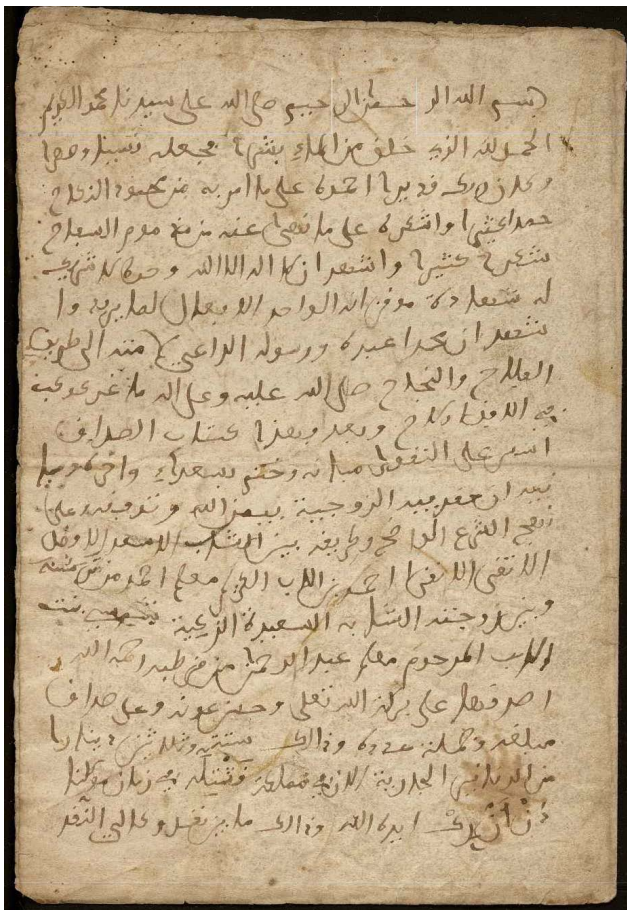 بسم الله الرحمن الرحيم صلى الله على سيدنا محمد الكريم
الحمد لله الذي خلق من الماء بشرا فجعله نسبا وصهرا
وكان ربك قديرا احمده على ما امر به من النكاح
حمدا كثيرا واشكره على ما نهى عنه من السفاح
شكرا كثيرا واشهد ان لا اله الا الله وحده لا شريك
له شهادة موقن انه الواحد الفعال لما يريد وا
شهد ان محمدا عبده ورسوله الداعي امته الى طريق
الفلاح والنجاح صلى الله عليه وعلى اله ما غرد
في الادواح وبعد وهذا كتاب الصداق
اسس على التقوى مبانه وختم بسعداء
بعد ان عقد بينه الزوجية بيمن الله وتوفيقه على
نهج الشرع الواضح وطريقه بين الشاب الاسعد الافضل
الاتقى احمد بن الاب معلم احمد
وبين زوجته الشابه السعيدة الزكية بنت
الاب المرحوم معلم عبد الرحمن رحمه الله
اصدقها على بركة الله تعلى وحسن عونه وعلى صداق
مبلغه وجملة عدده وذالك ستة وثلاثين دينارا
من الدنانير الجارية الان في زمان
ايده الله وذالك ما بين نقد وكالي النقد